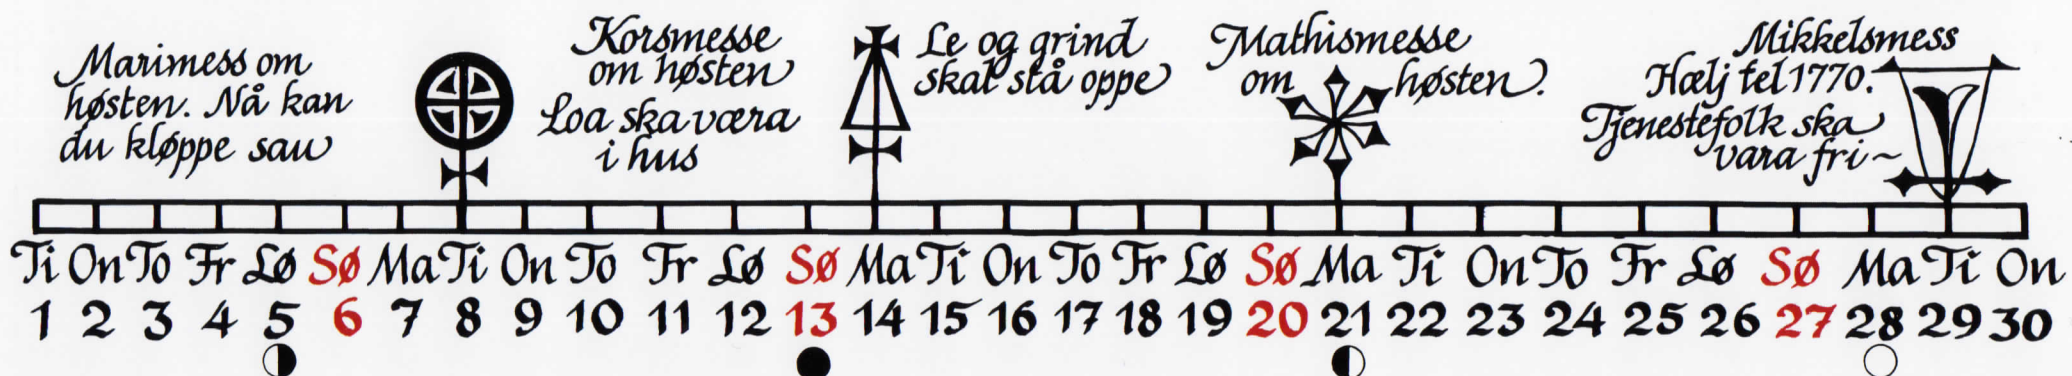 Marimess om
høsten. Nå kan
du kløppe sau
Korsmesse
om høsten
Loa ska væra
i hus
Le og grind
skal stå oppe
Mathismesse
om høsten.
Mikkelsmess
Hælj tel 1770.
Tjenestefolk ska
vara fri~
Ti On To Fr Lø Sø Ma Ti On To Fr Lø Sø Ma Ti On To Fr Lø Sø Ma Ti On To Fr Lø Sø Ma Ti On
1 2 3 4 5 6 7 8 9 10 11 12 13 14 15 16 17 18 19 20 21 22 23 24 25 26 27 28 29 30